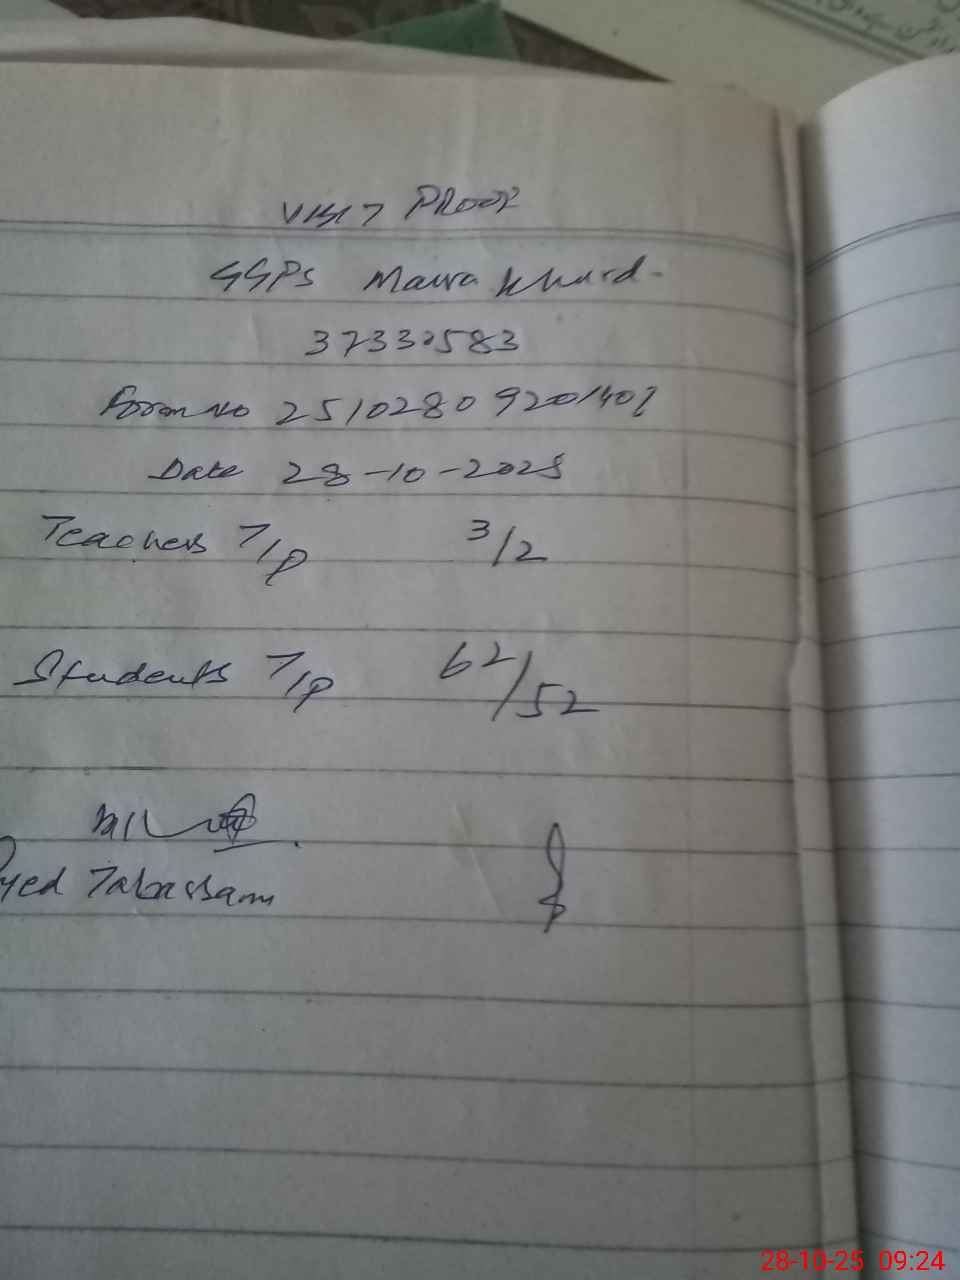 VISIT PROOF
GGPS Mawra Khurd-
37330583
Form No 2510280920140
Date 28-10-2025
Teachers T/P 3/2
Students T/P 62/52
Tabassam
28-10-25 09:24